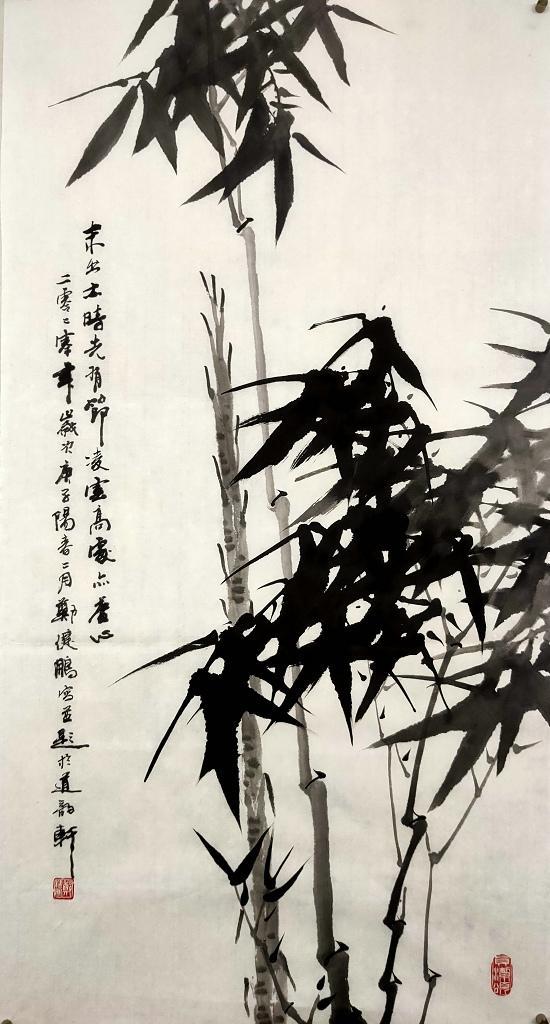 未出土時先有節凌雲高處亦虛心
二零二零年歲次庚子陽春二月鄭健鵬寫並題於道韵軒